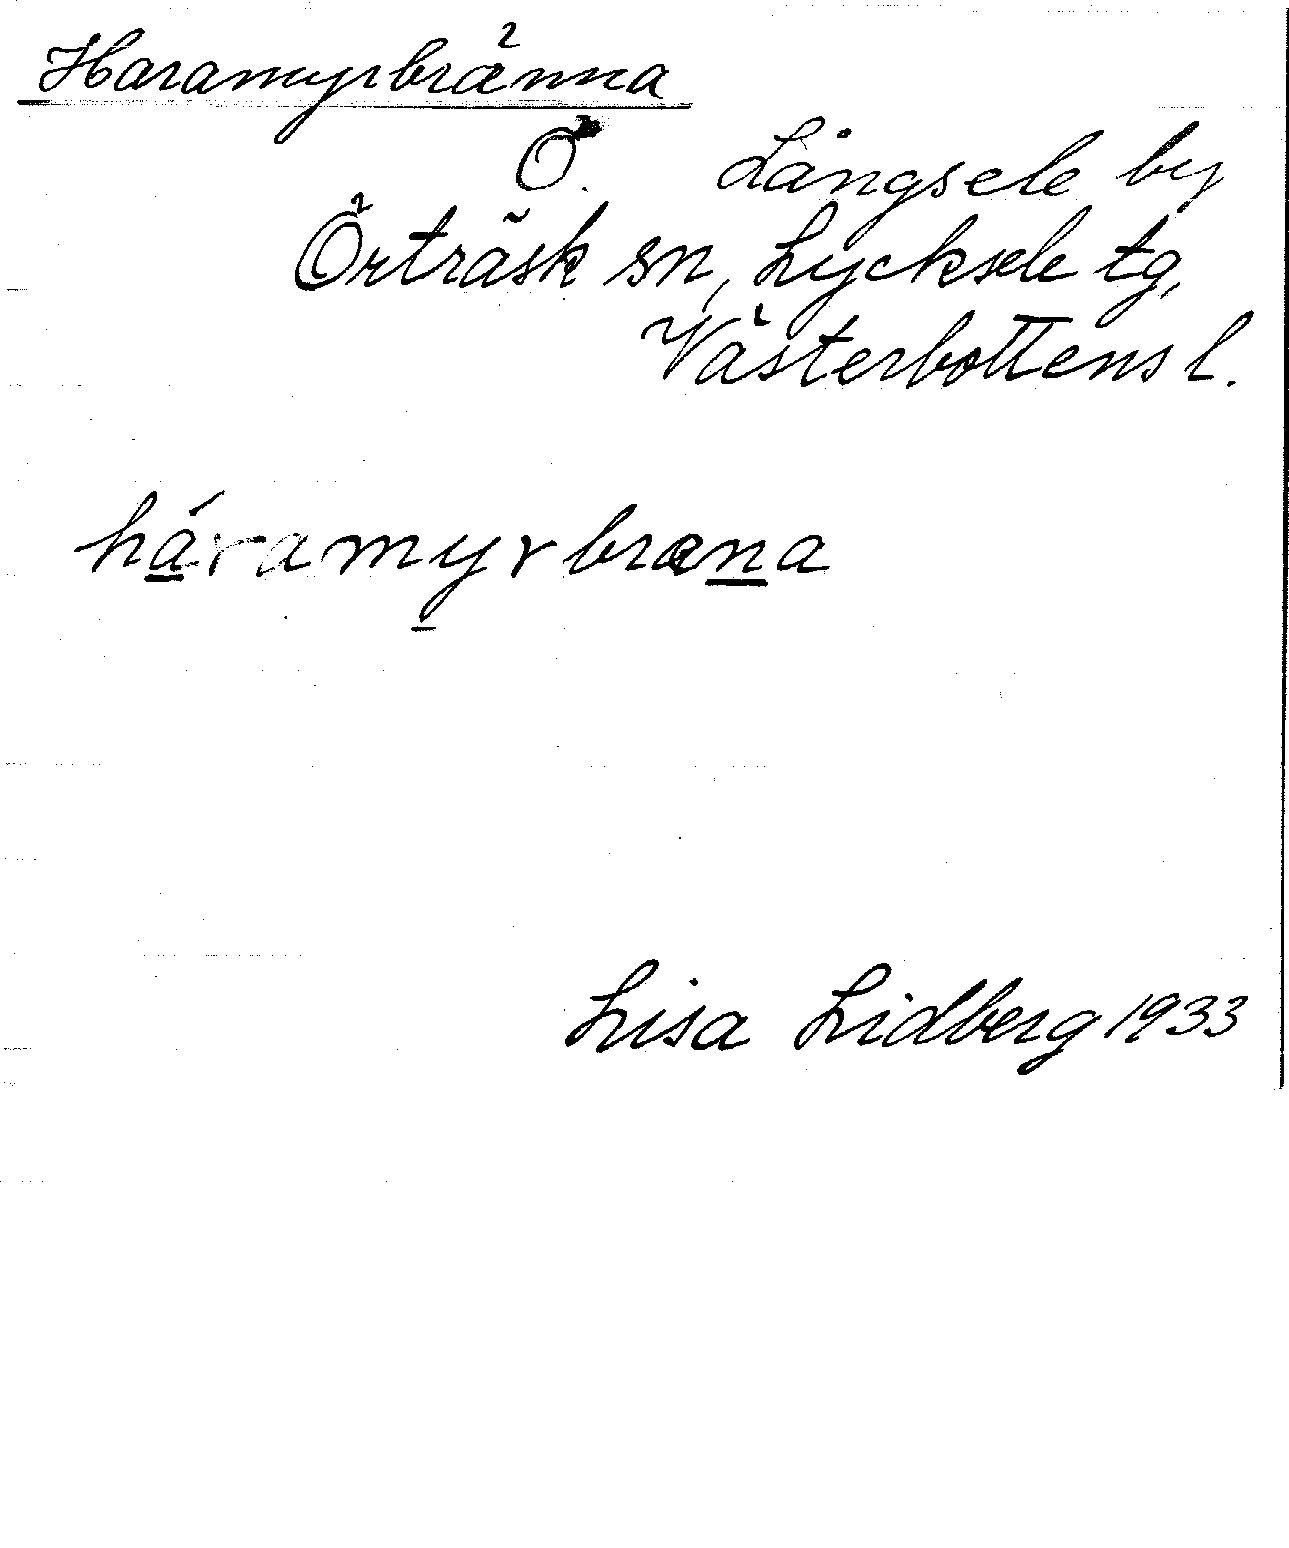 Haramyrbränna
Ö. Långsele by
Örträsk sn, Lycksele tg,
Västerbottens l.
háramyrbræna
Lisa Lidberg 1933